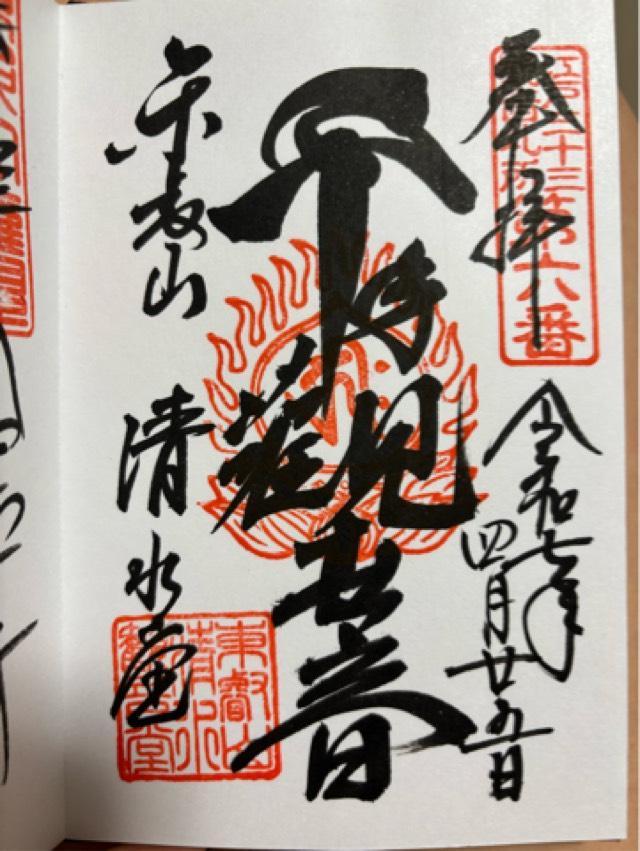 奉拝
江戸三十三 第六番
令和七年
四月廿五日
千手觀世音
東叡山 清水堂
東叡山
清水
觀音堂